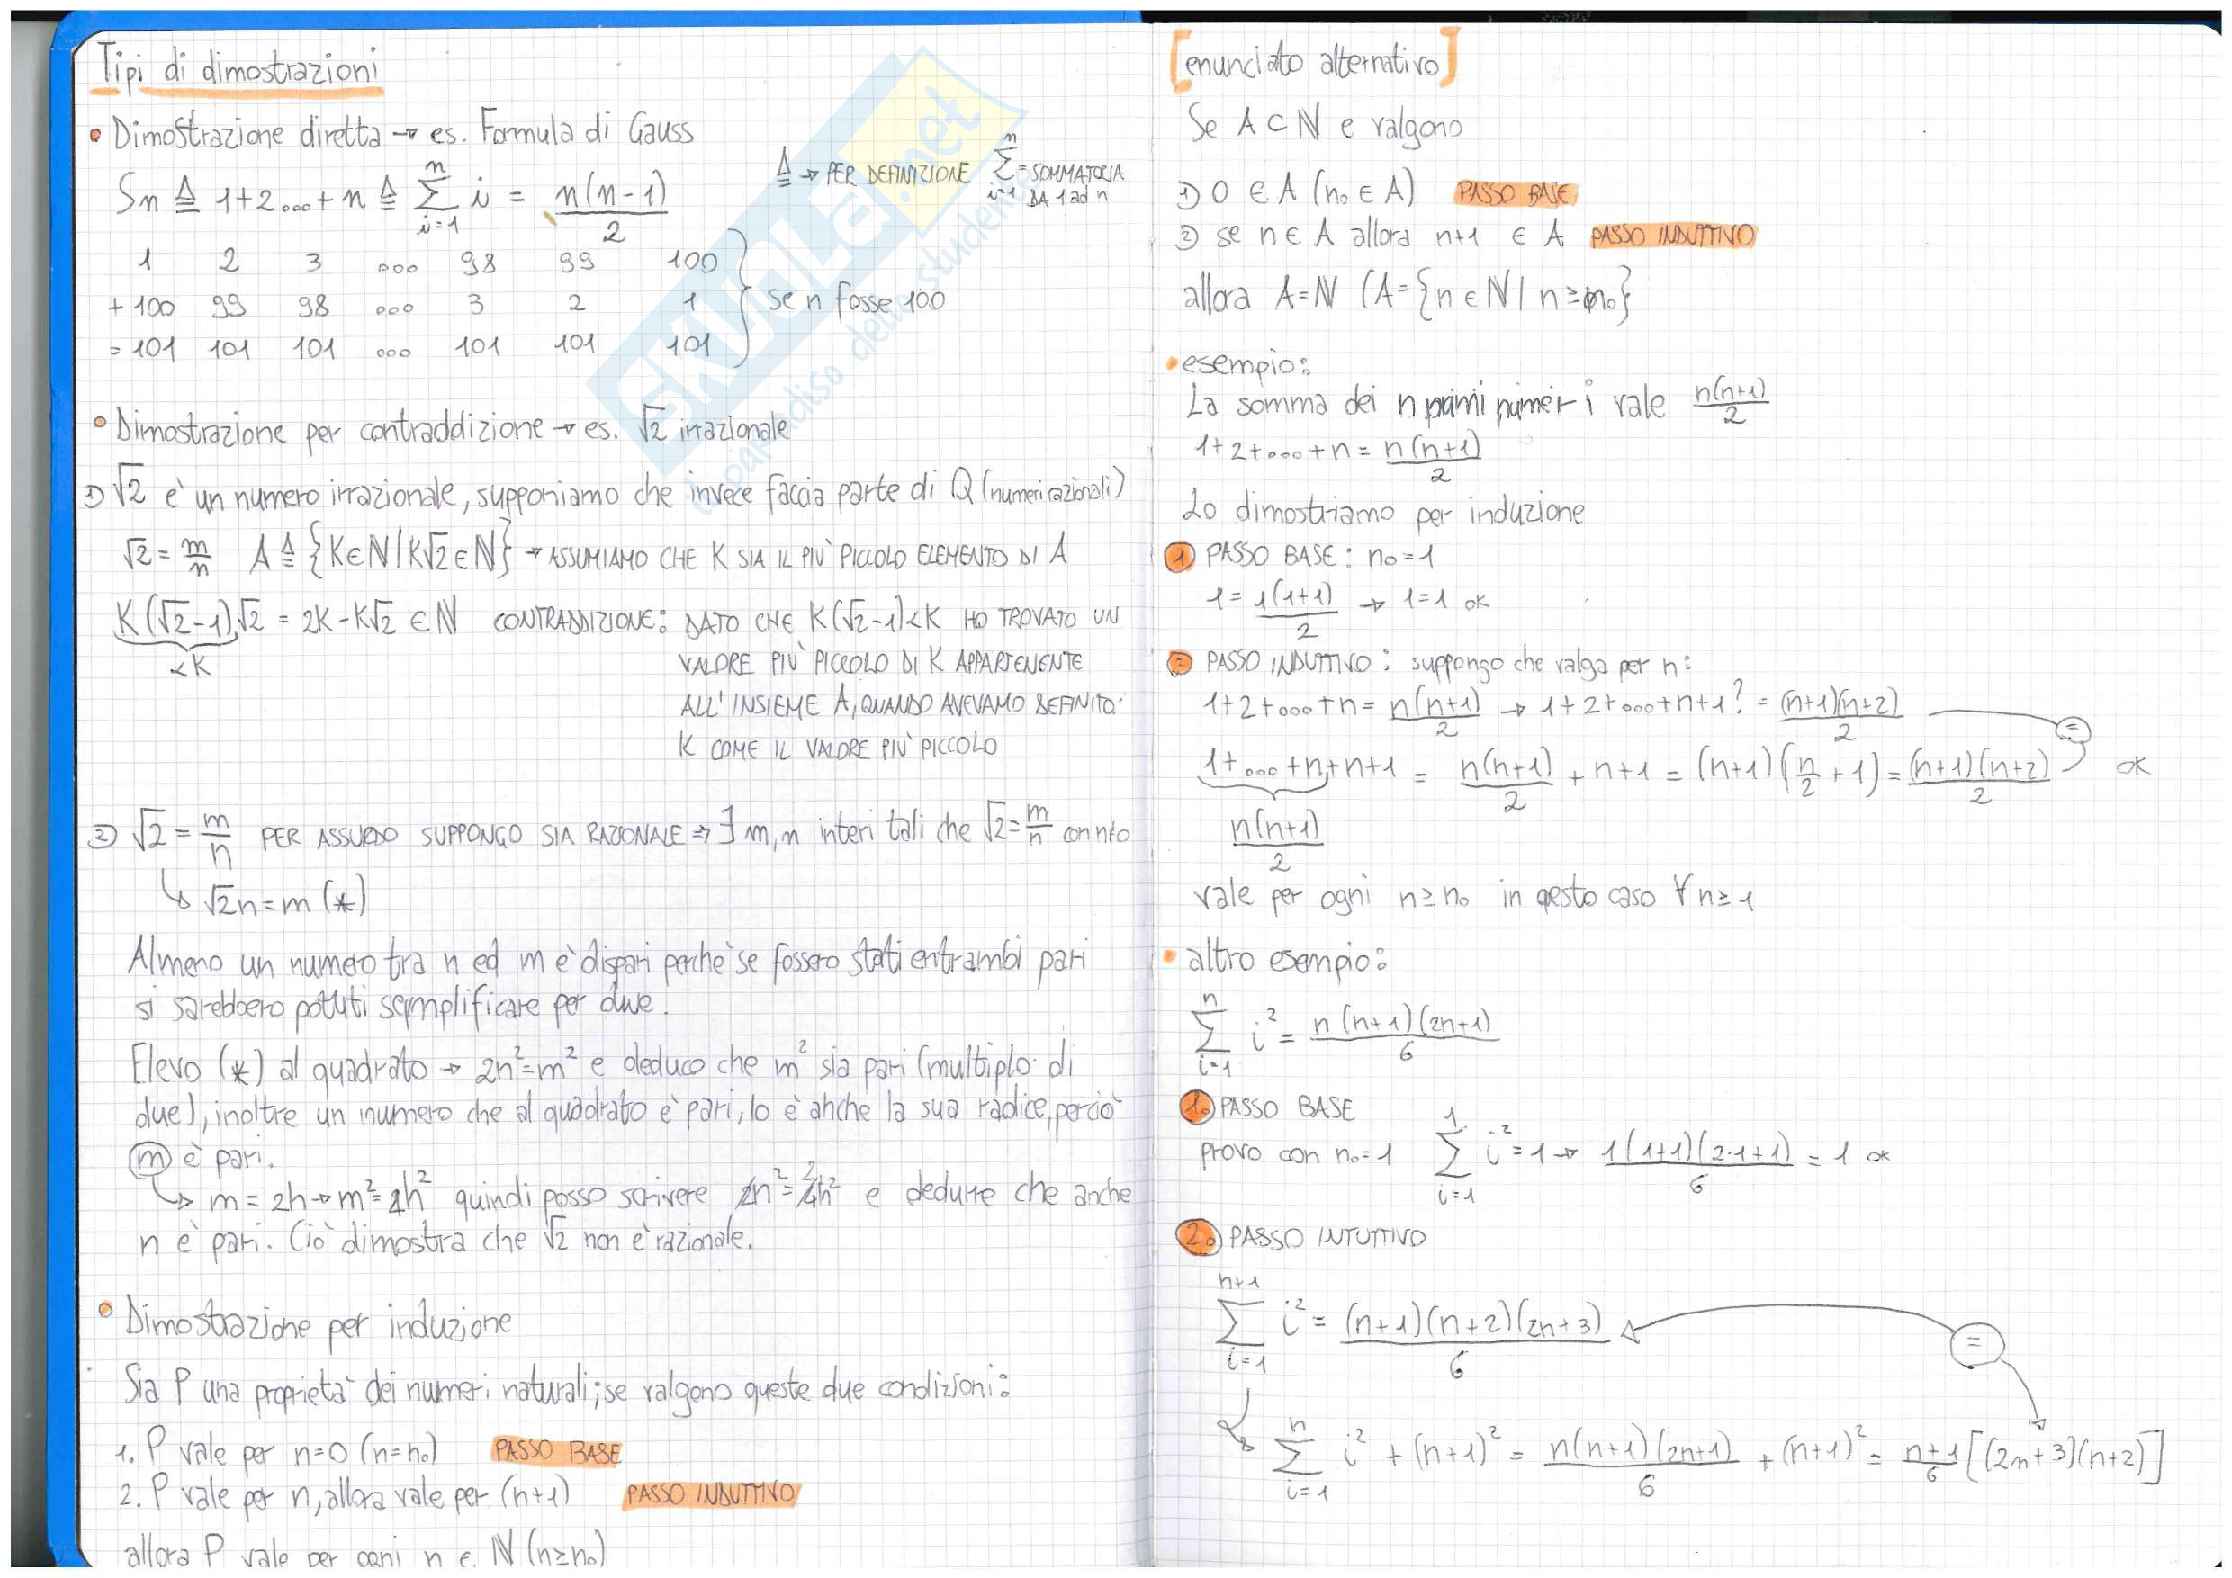 Tipi di dimostrazioni
• Dimostrazione diretta → es. Formula di Gauss
Sn ≜ 1+2...+n ≜ ∑_{i=1}^{n} i = n(n-1)/2
≜ → PER DEFINIZIONE ∑_{i=1}^{n} = SOMMATORIA DA 1 ad n
1 2 3 ... 98 99 100
+100 99 98 ... 3 2 1 } se n fosse 100
=101 101 101 ... 101 101 101
• Dimostrazione per contraddizione → es. √2 irrazionale
1) √2 è un numero irrazionale, supponiamo che invece faccia parte di Q (numeri razionali)
√2 = m/n A ≜ {K∈ℕ/K√2∈ℕ} → ASSUMIAMO CHE K SIA IL PIÙ PICCOLO ELEMENTO DI A
K(√2-1)√2 = 2K-K√2 ∈ℕ CONTRADDIZIONE: DATO CHE K(√2-1)<K HO TROVATO UN
<K VALORE PIÙ PICCOLO DI K APPARTENENTE
ALL'INSIEME A, QUANDO AVEVAMO DEFINITO
K COME IL VALORE PIÙ PICCOLO
2) √2 = m/n PER ASSURDO SUPPONGO SIA RAZIONALE ⇒ ∃ m,n interi tali che √2=m/n con n≠o
↳ √2n=m (*)
Almeno un numero tra n ed m è dispari perchè se fossero stati entrambi pari
si sarebbero potuti semplificare per due.
Elevo (*) al quadrato → 2n²=m² e deduco che m² sia pari (multiplo di
due), inoltre un numero che al quadrato è pari, lo è anche la sua radice, perciò
m è pari.
↳ m = 2h → m²=4h² quindi posso scrivere 2n²=4h² e dedurre che anche
n è pari. Ciò dimostra che √2 non è razionale.
• Dimostrazione per induzione
Sia P una proprietà dei numeri naturali; se valgono queste due condizioni:
1. P vale per n=0 (n=n₀) PASSO BASE
2. P vale per n, allora vale per (n+1) PASSO INDUTTIVO
allora P vale per ogni n ∈ ℕ (n≥n₀)
[enunciato alternativo]
Se A⊂ℕ e valgono
1) 0 ∈ A (n₀ ∈ A) PASSO BASE
2) se n∈A allora n+1 ∈ A PASSO INDUTTIVO
allora A=ℕ (A={n∈ℕ/ n≥n₀}
• esempio:
La somma dei n primi numeri vale n(n+1)/2
1+2+...+n = n(n+1)/2
Lo dimostriamo per induzione
1 PASSO BASE: n₀=1
1 = 1(1+1)/2 → 1=1 ok
2 PASSO INDUTTIVO: suppongo che valga per n:
1+2+...+n = n(n+1)/2 → 1+2+...+n+1 ?= (n+1)(n+2)/2
1+...+n+n+1 = n(n+1)/2 + n+1 = (n+1)(n/2 + 1) = (n+1)(n+2)/2 = ok
n(n+1)/2
vale per ogni n≥n₀ in qesto caso ∀n≥1
• altro esempio:
∑_{i=1}^{n} i² = n(n+1)(2n+1)/6
1. PASSO BASE
provo con n₀=1 ∑_{i=1}^{1} i²=1 → 1(1+1)(2·1+1)/6 = 1 ok
2. PASSO INTUTTIVO
∑_{i=1}^{n+1} i² = (n+1)(n+2)(2n+3)/6 =
∑_{i=1}^{n} i² + (n+1)² = n(n+1)(2n+1)/6 + (n+1)² = n+1/6 [(2n+3)(n+2)]
skuola.net
il paradiso dello studente